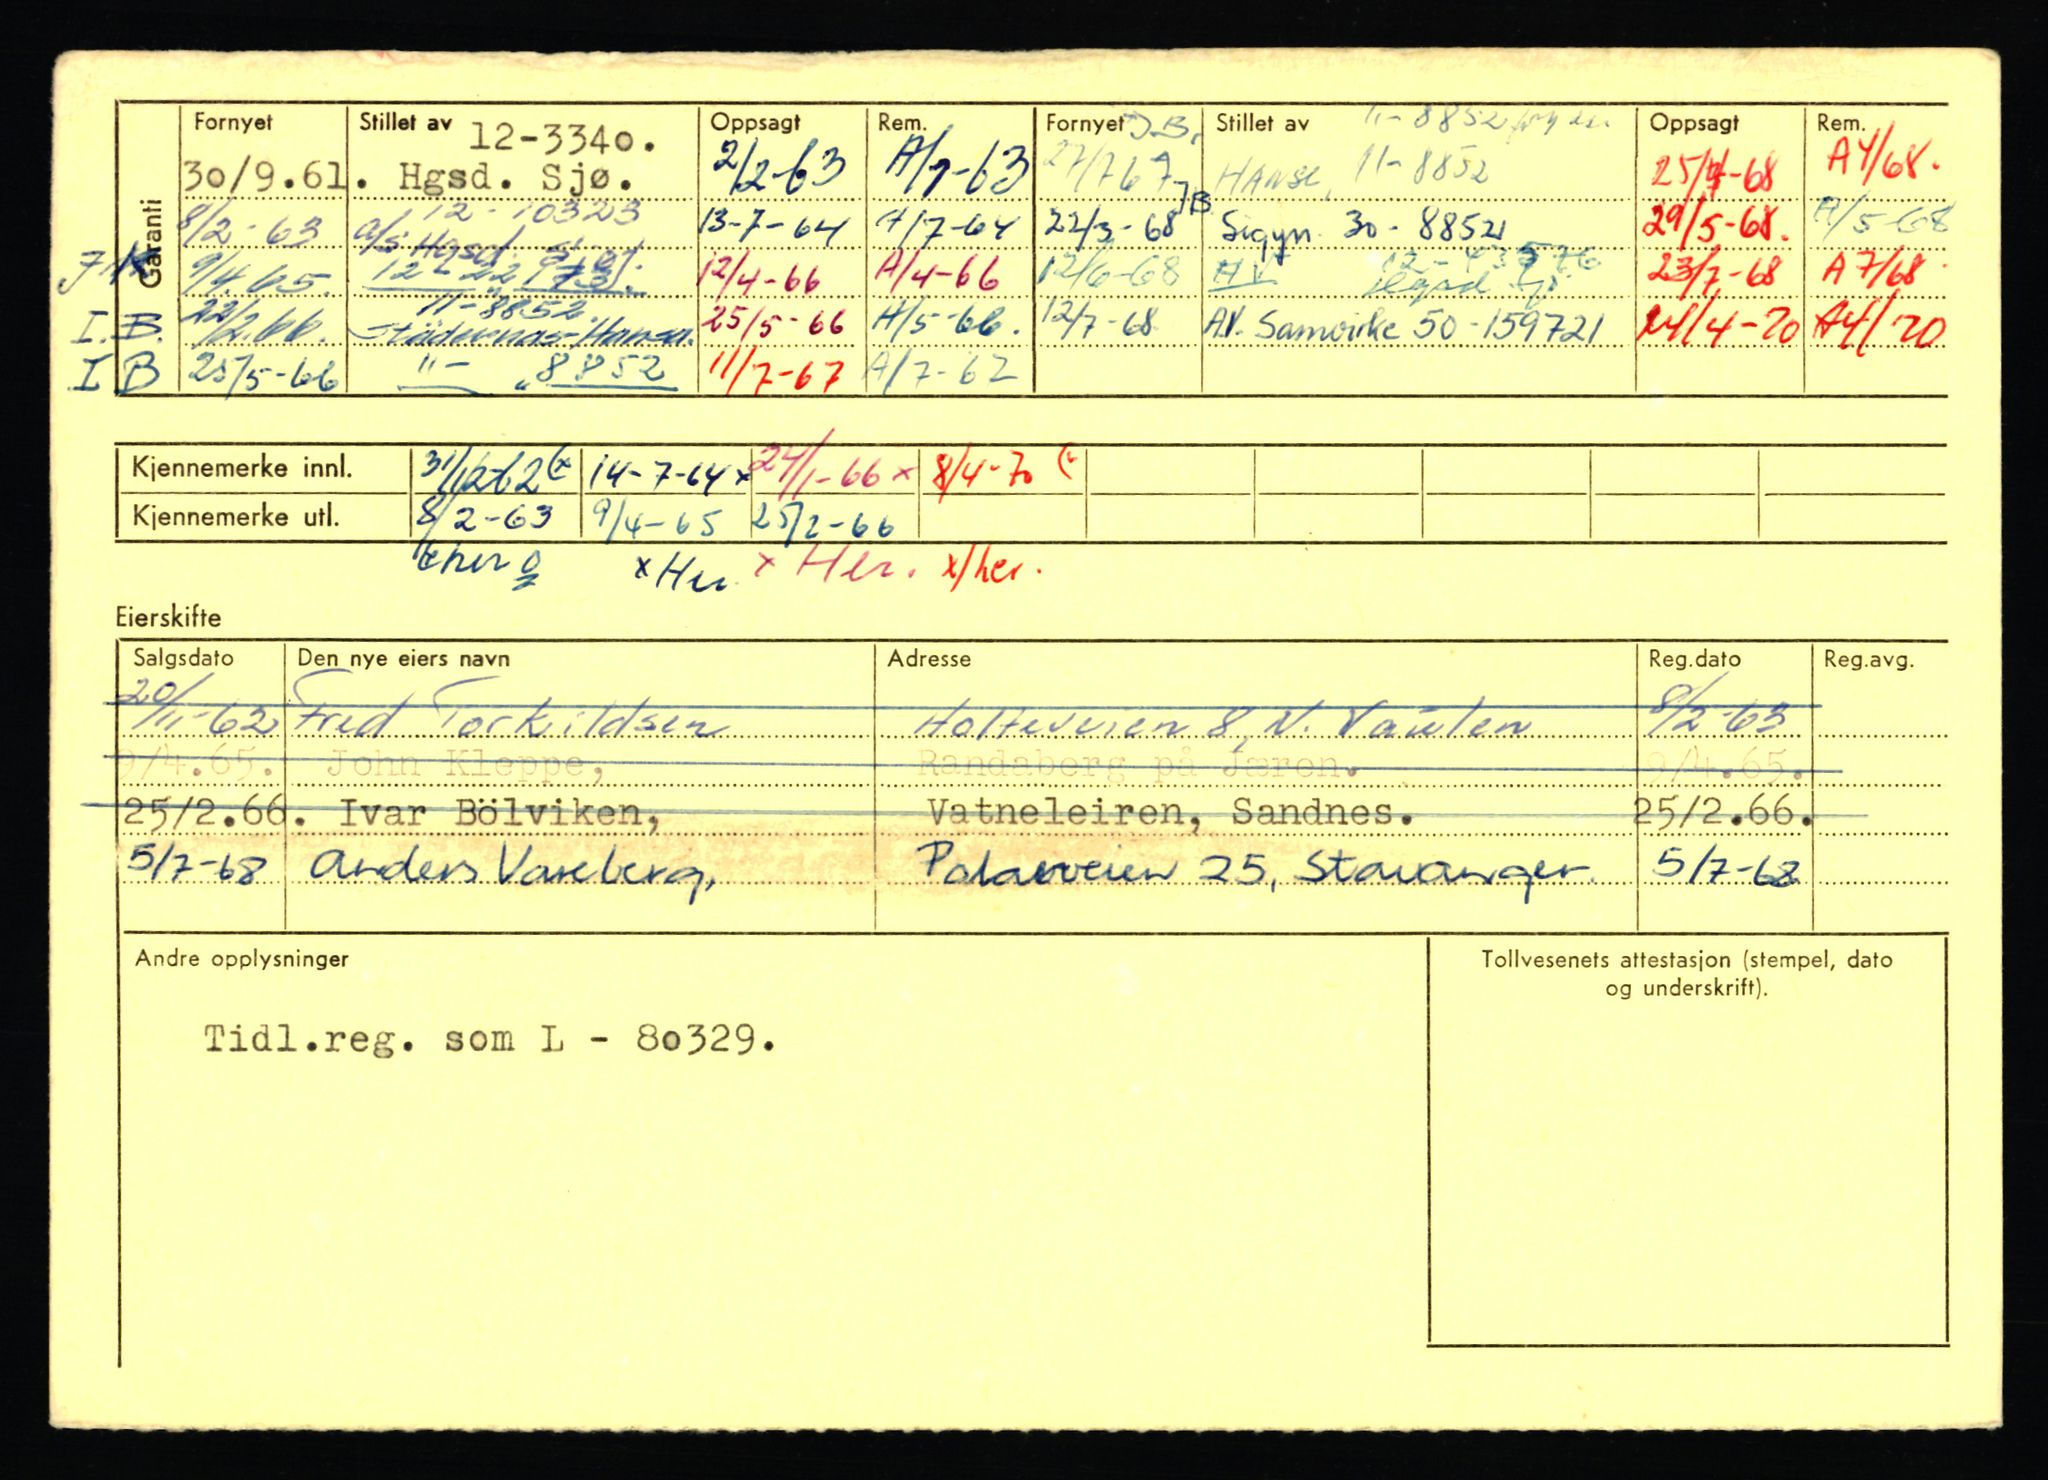 Garanti
Fornyet Stillet av 12-3340. Oppsagt Rem. Fornyet J.B. Stillet av 11-8852 Oppsagt Rem.
30/9.61. Hgsd. Sjø. 2/2-63 A/1-63 27/7 67 Hanse, 11-8852 25/4-68 A4/68.
8/2-63 12-10323 a/s Hgsd. 13-7-64 A/7-64 22/3-68 JB Sigyn 30-88521 29/5-68. A/5-68
J.K 9/4.65. 12/4-66 A/4-66 12/6-68 A.V. 23/7-68 A7/68
I.B. 22/2.66. 11-8852. Städernas-Hansa. 25/5-66 A/5-66. 12/7-68. A.V. Samvirke 50-159721 /4-70 A4/70
IB 25/5-66 11- „ 8852 11/7-67 A/7-67
Kjennemerke innl. 31/12-62 (x 14-7-64 x 24/1-66 x 8/4-70 (x
Kjennemerke utl. 8/2-63 9/4-65 25/2-66
x Her. x Her. x/her.
Eierskifte
Salgsdato Den nye eiers navn Adresse Reg.dato Reg.avg.
20/11-62 Fred Torkildsen Holteveien 8, N. Vaulen 8/2-63
9/4.65. John Kleppe, Randaberg på Jæren. 9/4.65.
25/2.66. Ivar Bölviken, Vatneleiren, Sandnes. 25/2.66.
5/7-68 Anders Vareberg, Polarveien 25, Stavanger. 5/7-68
Andre opplysninger
Tollvesenets attestasjon (stempel, dato
og underskrift).
Tidl.reg. som L - 80329.